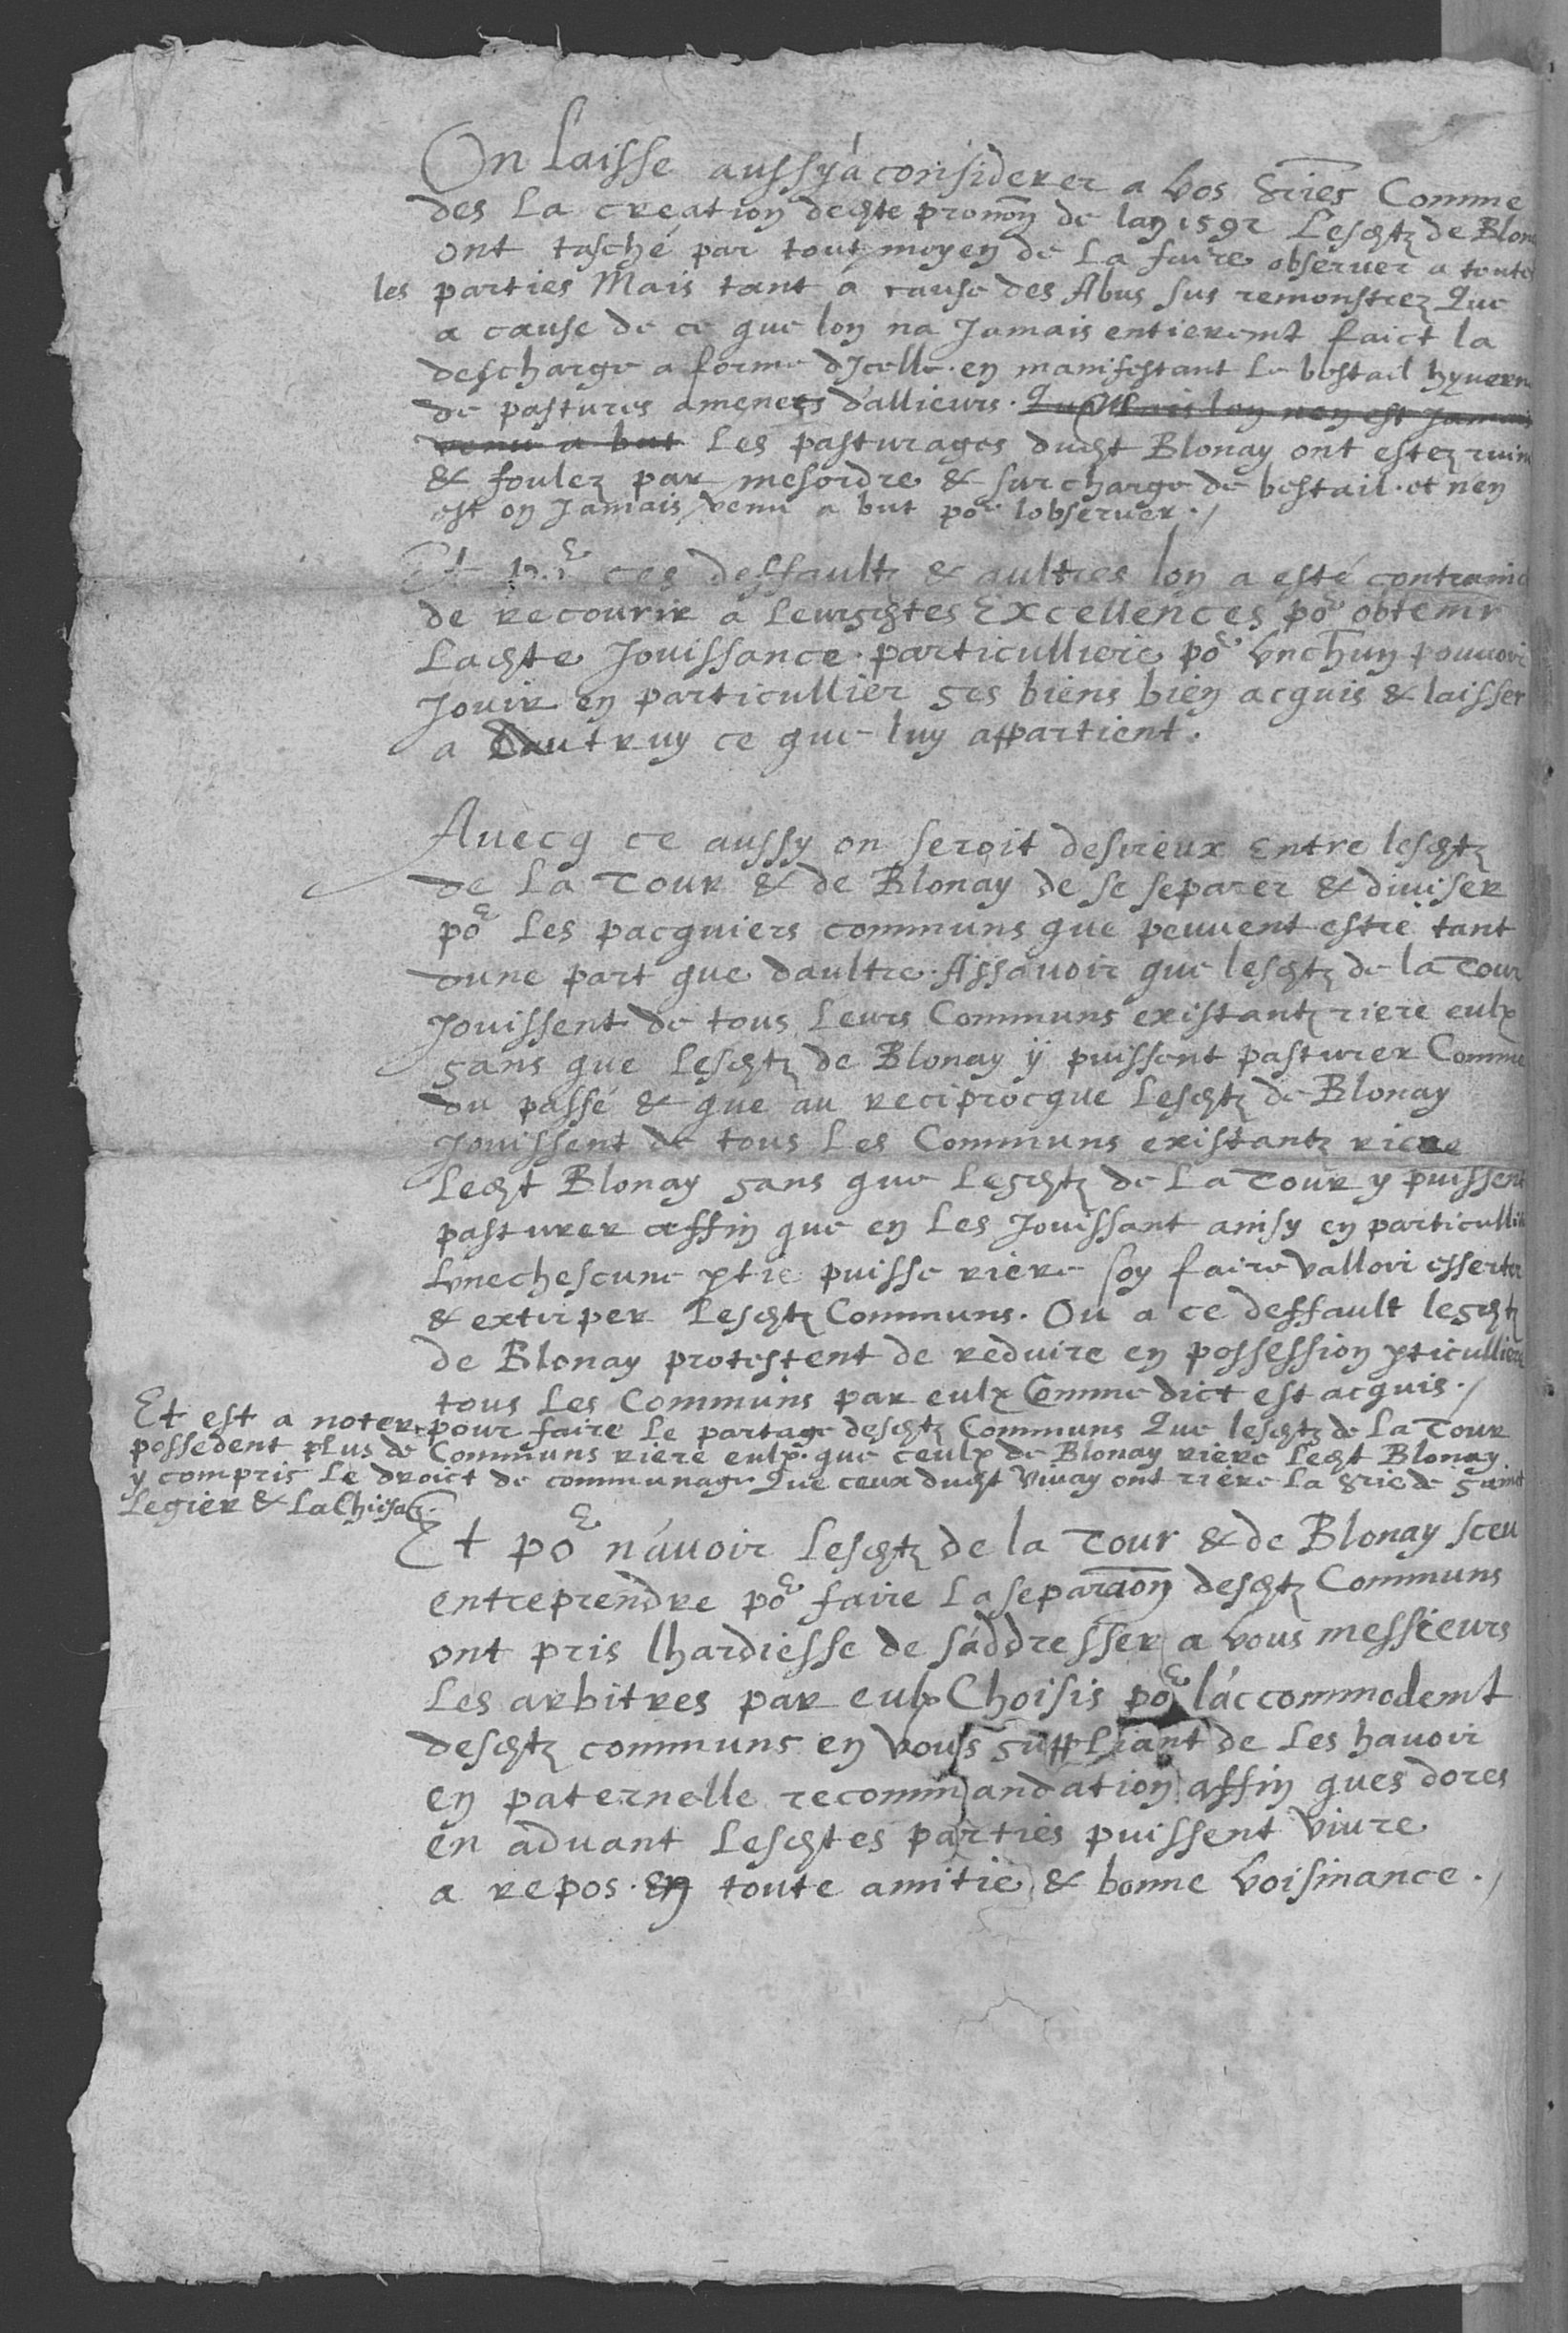 On laisse aussy à considerer a vos Sries Comme
des la creation deschte pronon de lan 1592 Leschtz de Blon
ont tasché par tout moyen de la faire observer a toute
les parties Mais tant à cause des Abus sus remonstrez Que
a cause de ce que lon na Jamais entieremt faict la
descharge a forme dJcelle en manifestant le bestail hyvern
de pastures amenees d'allieurs. Qu lon nen est Jamais
venu a but Les pasturages ducht Blonay ont estez ruin
& foulez par mesordre & surcharge de bestail. et n'en
est on Jamais venu a but por lobserver./
Et por ces deffaultz & aultres lon a esté contrainc
de recourir a Leurschtes Excellences por obtenir
Lachte Jouissance particulliere por vnchun pouuoir
Jouir en particullier ses biens bien acquis & laisser
a dautruy ce que luy appartient.
Auecq ce aussy on seroit desireux entre leschtz
de La Tour & de Blonay de se separer & diuiser
por les pacquiers communs que peuuent estre tant
dune part que daultre. Assavoir que leschtz de la Tour
Jouissent de tous leurs Communs existantz riere eulx
sans que Leschtz de Blonay ÿ puissent pasturer Comme
du passé & que au reciprocque Leschtz de Blonay
Jouissent de tous les Communs existantz riere
Lecht Blonay sans que Leschtz de La Tour y puissent
pasturer affin que en les Jouissant ainsy en particulli
vnechescune ptie puisse riere soy faire valloir esserter
& extirper Leschtz Communs. Ou a ce deffault leschtz
de Blonay protestent de reduire en possession pticulliere
tous les Communs par eulx Comme dict est acquis./
Et est a noter pour faire le partage deschtz Communs Que leschtz de La Tour
possedent plus de Communs riere eulx que ceulx de Blonay riere lecht Blonay.
y compris le droict de communage Que ceux ducht Vivay ont riere la Srie de sainct
Legier & La Chiesaz.
Et por n'auoir Leschtz de la Tour & de Blonay sceu
entreprendre por faire la separaon deschtz Communs
ont pris lhardiesse de s'addresser a vous messieurs
Les arbitres par eulx Choisis por l'accommodemt
deschtz communs en vous suppliant de les havoir
en paternelle recommandation affin ques dores
en aduant Leschtes parties puissent viure
a repos en toute amitie & bonne voisinance./